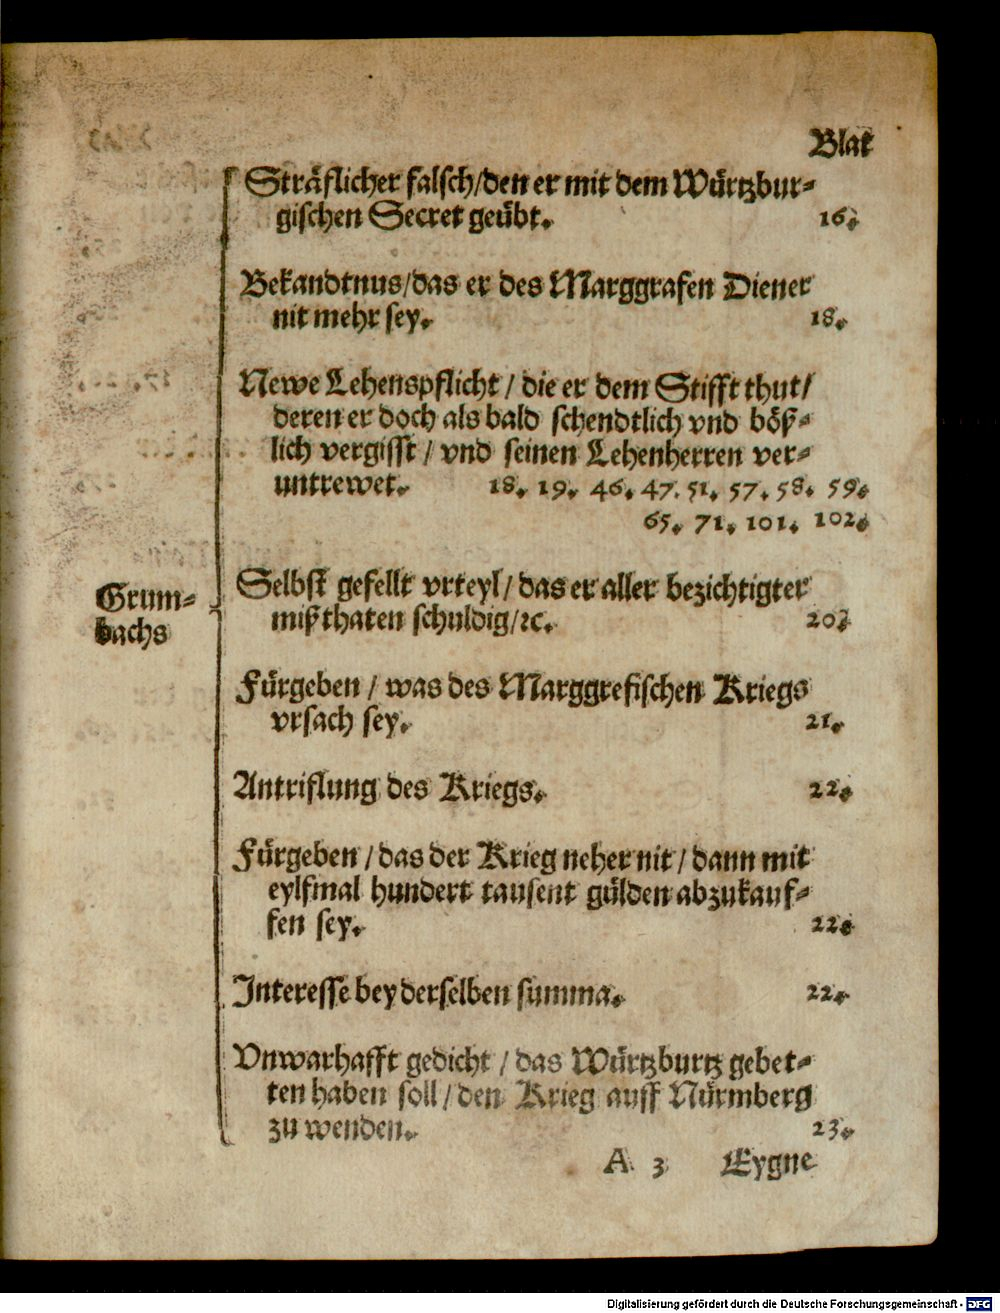 Blat
Sträflicher falsch/den er mit dem Würtzbur-
gischen Secret geübt. 16.
Bekandtnus/das er des Marggrafen Diener
nit mehr sey. 18.
Newe Lehenspflicht / die er dem Stifft thut/
deren er doch als bald schendtlich vnd böß-
lich vergisst / vnd seinen Lehenherren ver-
untrewet. 18. 19. 46. 47. 51. 57. 58. 59.
65. 71. 101. 102.
Grum-
bachs
Selbst gefellt vrteyl / das er aller bezichtigter
mißthaten schuldig/ꝛc. 20.
Fürgeben / was des Marggrefischen Kriegs
vrsach sey. 21.
Antriflung des Kriegs. 22.
Fürgeben / das der Krieg neher nit / dann mit
eylfmal hundert tausent gülden abzukauf-
fen sey. 22.
Interesse bey derselben summa. 22.
Vnwarhafft gedicht / das Würtzburtz gebet-
ten haben soll / den Krieg auff Nürmberg
zu wenden. 23.
A 3 Eygne
Digitalisierung gefördert durch die Deutsche Forschungsgemeinschaft - DFG